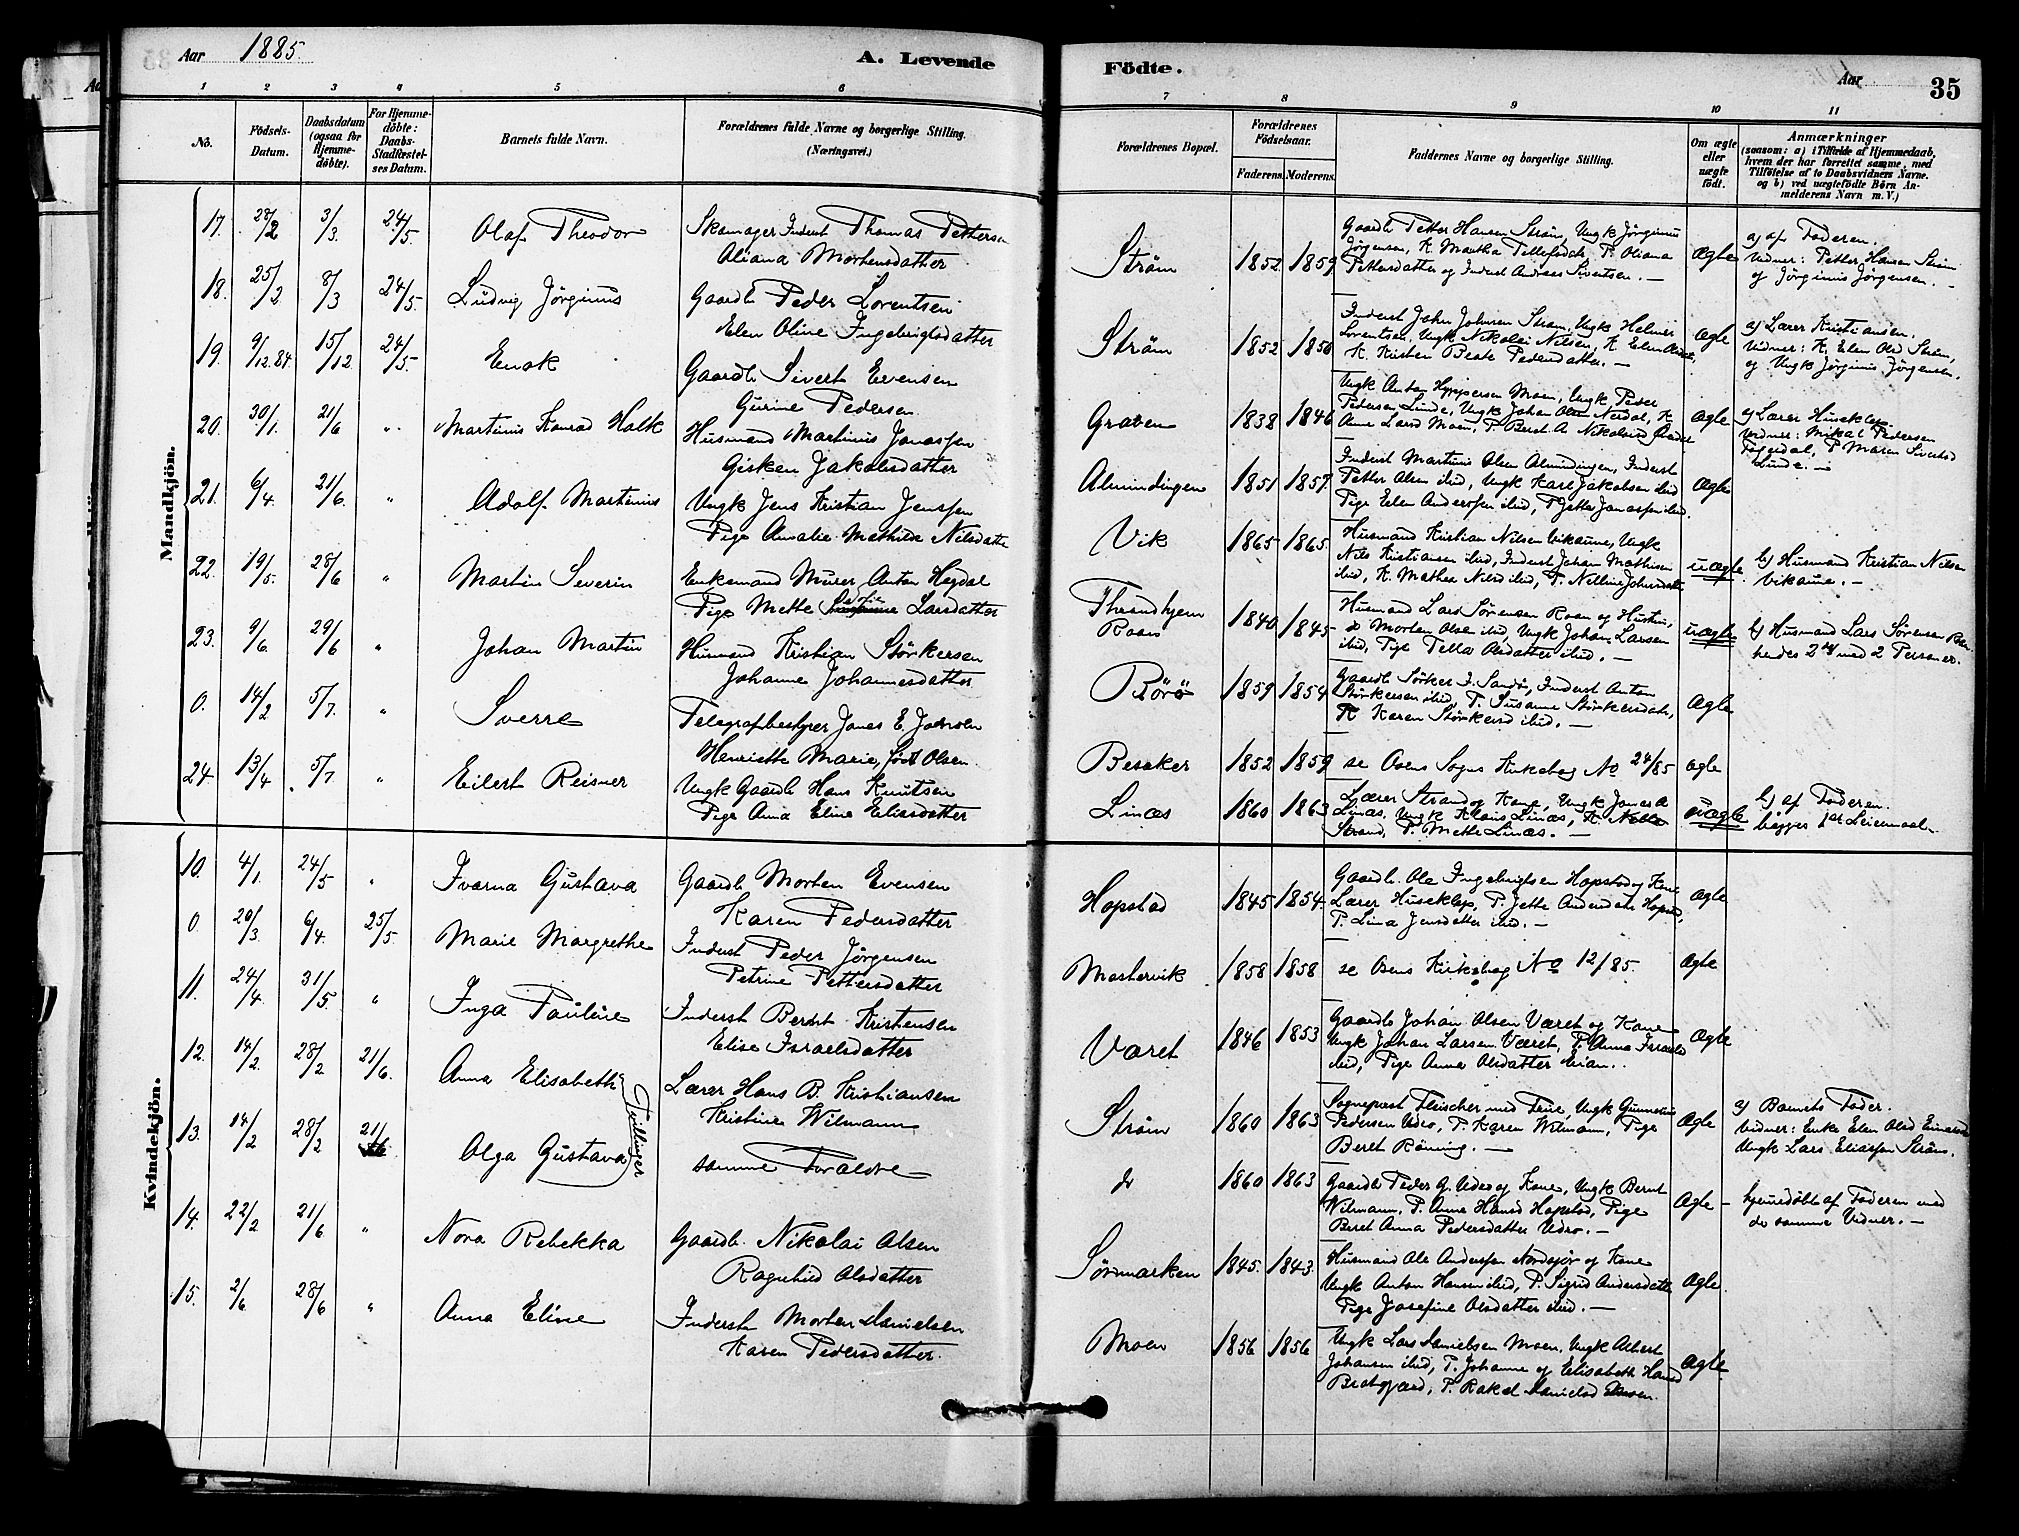 Aar 1885. A. Levende
1 2 3 4 5 6
No. Födsels-Datum. Daabsdatum (ogsaa for Hjemmedöbte). For Hjemmedöbte: Daabs-Stadfæstelses Datum. Barnets fulde Navn. Forældrenes fulde Navne og borgerlige Stilling. (Næringsvei.)
Mandkjön.
17. 28/2 3/3. 24/5. Olaf Theodor Skomager Inderst Thomas Pettersen
Oliana Mortensdatter
18. 25/2 8/3 24/5. Ludvig Jørginus Gaardb Peder Lorentsen
Elen Oline Ingebrigtsdatter
19. 9/12.84. 15/12 24/5. Enok Gaardb Sivert Evensen
Gurine Pedersen
20. 30/1. 21/6 " Martinus Konrad Holk Husmand Martinus Jonassen
Gisken Jakobsdatter
21. 6/4 21/6. " Adolf Martinus Ungk Jens Kristian Jenssen
Pige Amalie Mathilde Nilsdatter
22. 19/5. 28/6 " Martin Severin Enkemand Murer Anton Hegdal
Pige Mette Sofie Larsdatter
23. 9/6. 29/6 " Johan Martin Husmand Kristian Størkersen
Johanne Johannesdatter
0. 14/2 5/7. " Sverre Telegrafbestyrer Jonas E. Jakobsen
Henriette Marie, født Olsen
24. 13/4 5/7 " Eilert Reisner Ungk Gaardb Hans Knutsen
Pige Anna Eline Eliasdatter
Kvindekjön.
10. 4/1. 24/5 " Ivarna Gustava Gaardb Morten Evensen
Karen Pedersdatter
0. 20/3 6/4. 25/5. Marie Margrethe Inderst Peder Jörgensen
Petrine Pettersdatter
11. 24/4. 31/5. " Inga Pauline Inderst Berent Kristensen
Elise Israelsdatter
12. 14/2. 28/2 21/6. Anna Elisabeth Lærer Hans B. Kristiansen
Kristine Wilmann
Tvillinger
13. 14/2 28/2 21/6 Olga Gustava samme Forældre
14. 22/2 21/6 " Nora Rebekka Gaardb. Nikolai Olsen
Ragnhild Olsdatter
15. 2/6 28/6 " Anna Eline Inderst Morten Danielsen
Karen Pedersdatter.
Födte. Aar 35
7 8 9 10 11
Forældrenes Bopæl. Forældrenes Födselsaar. Faderens. Moderens. Faddernes Navne og borgerlige Stilling. Om ægte eller uægte födt. Anmærkninger (saasom: a) i Tilfælde af Hjemmedaab, hvem der har forrettet samme, med Tilföielse af to Daabsvidners Navne. og b) ved uægtefödte Börn Anmelderens Navn m. V.)
Strøm 1852 1859 Gaardb Petter Hansen Strøm, Ungk Jørginus
Jørgensen, K. Martha Tellefsdatr, P. Oliana
Pettersdatter og Inderst Andreas Sivertsen. Ægte
a) af Faderen.
Vidner: Petter Hansen Strøm
og Jørginus Jörgensen.
Strøm 1852 1850 Inderst John Johnsen Strøm, Ungk Helmer
Lorentsen, Ungk Nikolai Nilsen, K. Elen
K. Kirsten Beate Pedersdatter. Ægte
a) Lærer Kristiansen.
Vidner: K. Elen Olsd Strøm,
og Ungk Jørginus Jørgensen.
Graven 1838 1846 Ungk Anton Moen, Ungk Peder
Pedersen Linde, Ungk Johan Olsen Nerdal, K
Anne Larsd Moen, P. Berit A Nikolaisd Ægte
a) Lærer Huseklep
Vidner: Mikal Pedersen
P Maren Sivertsd
Linde.
Almindingen 1851 1857. Inderst Martinus Olsen Almindingen, Inderst
Petter Olsen ibid, Ungk Karl Jakobsen ibid
Pige Elen Anderssen ibid, P Jette Jonassen ibid. Ægte
Vik 1865 1865. Husmand Kristian Nilsen Vikaune, Ungk
Nils Kristiansen ibid, Inderst Johan Mathisen
ibid, K. Mathea Nilsd ibid, P. Nelline Johnsdatr uægte
b) Husmand Kristian Nilsen
Vikaune.
Throndhjem
Roan 1840 1845 Husmand Lars Sørensen Roan og Hustru,
do Morten Olsen ibid, Ungk Johan Larsen
ibid, Pige Pella Olsdatter ibid. uægte
b) Husmand Lars Sørensen
hendes 2det med 2 Personer.
Børø 1859 1854 Gaardb Sørker J. Sandø, Inderst Anton
Størkersen ibid, P. Susanne Størkersdatr,
K Karen Størkersd ibid. Ægte
Besaker 1852 1859 se Osens Sogns Kirkebog No 24/85 ægte
Linæs 1860 1863 Lærer Strand og Kone, Ungk Jonas A
Linæs, Ungk Klaus Linæs, K. Nella
Strand, P. Mette Linæs. uægte
b) af Faderen.
begges 1ste Leiermaal.
Hopstad 1845 1854. Gaardb. Ole Ingebrigtsen Hopstad og Kone
Lærer Huseklep, P. Jette Andersdatr Hopstad,
P. Lina Jensdatter ibid. Ægte
Mastervik 1858 1858 se Osens Kirkebog No 12/85. Ægte
Været 1846 1853 Gaardb Johan Olsen Været og Kone
Ungk Johan Larsen Været, P. Anna Israelsd
ibid, Pige Anna Olsdatter Eian. Ægte
Strøm 1860 1863 Sogneprest Fleischer med Frue, Ungk Gunnerius
Pedersen Vedro, P. Karen Wilmann, Pige
Beret Röning. Ægte
a) Barnets Fader.
Vidner: Enke Elen Olsd
Ungk Lars Eliassen Strøm.
do 1860 1863 Gaardb Peder G. Vedro og Kone, Ungk Bernt
Wilmann, P. Anne Hansd Hopstad, Pige
Beret Anna Pedersdatter Vedro. Ægte
hjemmedøbt af Faderen med
de samme Vidner.
Sørmarken 1845. 1843. Husmand Ole Anderssen Nordsjør og Kone
Ungk Anton Hansen ibid, P. Sigrid Andersdatter
Pige Josefine Olsdatter ibid. Ægte
Moen 1856 1856 Ungk Lars Danielsen Moen, Ungk Albert
Johansen ibid, P. Johanne og Elisabeth Hansd
Bratgjærd, P. Rakel Danielsd Ægte